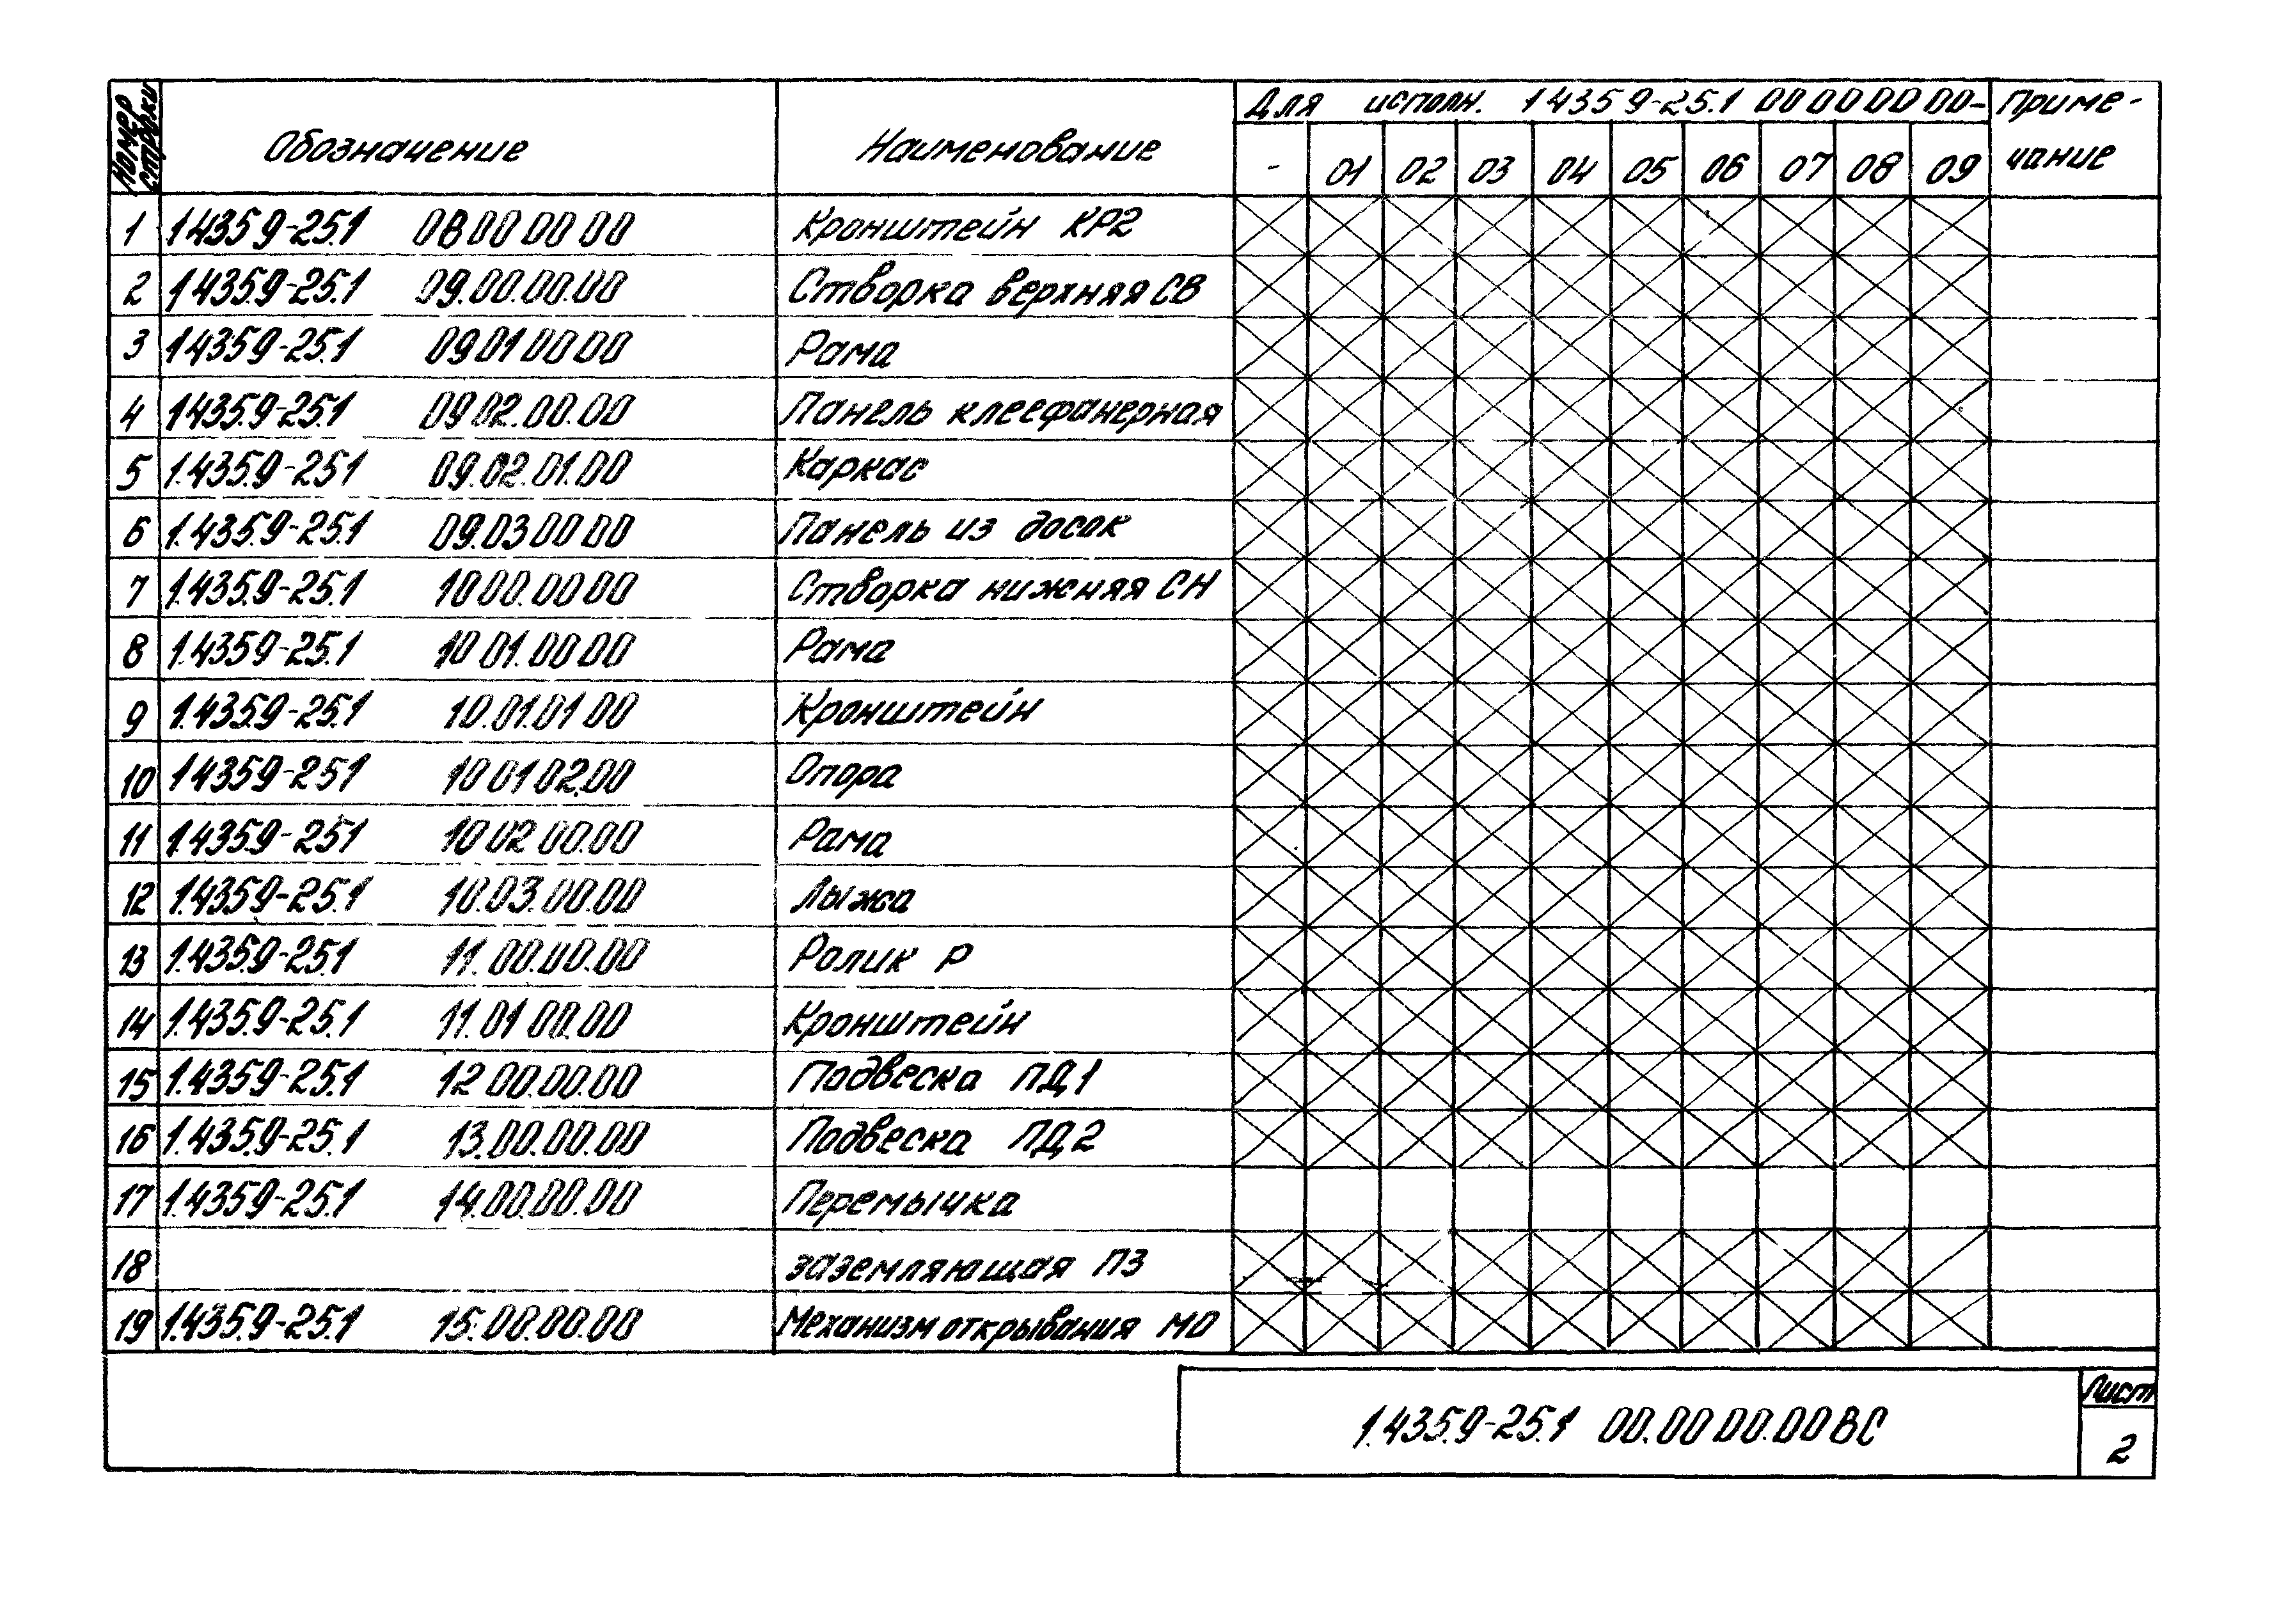 Номер строки Обозначение Наименование Для исполн. 1 4359-25.1 00 00 00 00- Приме-
чание
- 01 02 03 04 05 06 07 08 09
1 1.4359-25.1 08 00 00 00 Кронштейн КР2
2 1 4359-25.1 09.00.00.00 Створка верхняя СВ
3 1.4359-25.1 09 01 00 00 Рама
4 1 435.9-25.1 09 02.00.00 Панель клеефанерная
5 1.435.9-25 1 09.02.01.00 Каркас
6 1.435.9-25.1 09.03 00 00 Панель из досок
7 1.435.9-25.1 10 00.00 00 Створка нижняя СН
8 1.4359-25.1 10 01.00 00 Рама
9 1.435.9-25.1 10.01.01 00 Кронштейн
10 1 4359-25 1 10 01 02.00 Опора
11 1.435.9-25 1 10 02 00.00 Рама
12 1.4359-25.1 10.03.00.00 Лыжа
13 1.435.9-25.1 11.00.00.00 Ролик Р
14 1.435.9-25.1 11.01 00.00 Кронштейн
15 1.4359-25.1 12 00.00.00 Подвеска ПД1
16 1.435.9-25.1 13.00.00.00 Подвеска ПД2
17 1.4359-25.1 14.00.00.00 Перемычка
18 заземляющая ПЗ
19 1.435.9-25.1 15.00.00.00 Механизм открывания МО
1.435.9-25.1 00.00 00.00 ВС
Лист
2